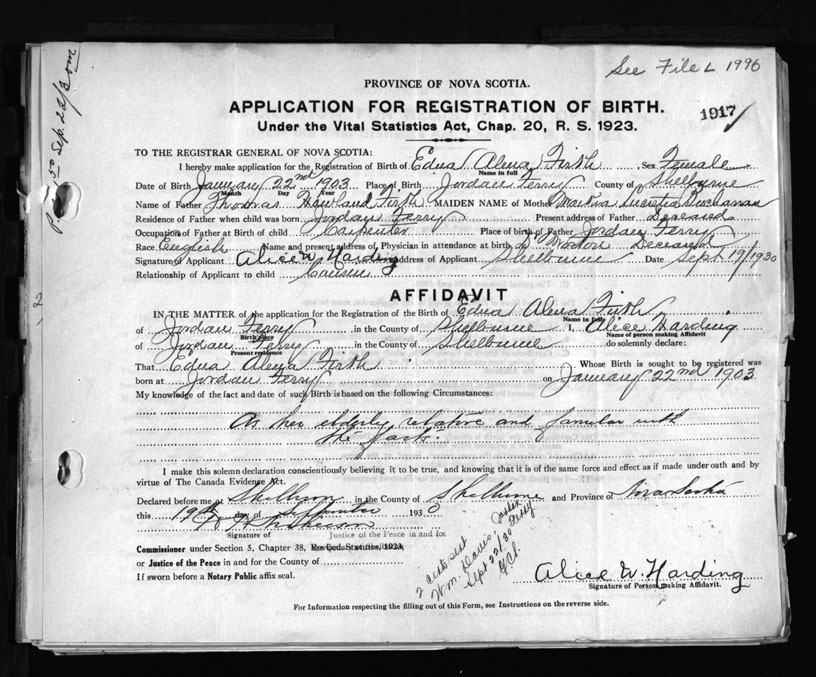 See File L 1996
PROVINCE OF NOVA SCOTIA.
APPLICATION FOR REGISTRATION OF BIRTH.
1917
Under the Vital Statistics Act, Chap. 20, R. S. 1923.
TO THE REGISTRAR GENERAL OF NOVA SCOTIA:
I hereby make application for the Registration of Birth of Edna Alena Firth Sex Female
Name in full
Date of Birth January 22nd 1903 Place of Birth Jordan Ferry County of Shelbourne
Month Day Year
Name of Father Thomas Howland Firth MAIDEN NAME of Mother Martha Lucretia Buchanan
Residence of Father when child was born Jordan Ferry Present address of Father Deceased
Occupation of Father at Birth of child Carpenter Place of birth of Father Jordan Ferry
Race English Name and present address of Physician in attendance at birth Dr Morton Deceased
Signature of Applicant Alice W. Harding address of Applicant Shelbourne Date Sept 19/1930
Relationship of Applicant to child Cousin
AFFIDAVIT
IN THE MATTER of the application for the Registration of the Birth of Edna Alena Firth
Name in full
of Jordan Ferry in the County of Shelbourne I, Alice Harding
Birth place Name of person making Affidavit
of Jordan Ferry in the County of Shelbourne do solemnly declare:
Present residence
That Edna Alena Firth Whose Birth is sought to be registered was
born at Jordan Ferry on January 22nd 1903
My knowledge of the fact and date of such Birth is based on the following Circumstances:
As her elderly relative and familar with
the facts.
I make this solemn declaration conscientiously believing it to be true, and knowing that it is of the same force and effect as if made under oath and by
virtue of The Canada Evidence Act.
Declared before me at Shelburne in the County of Shelburne and Province of Nova Scotia
this 19th day of September 1930
Signature of Justice of the Peace in and for
Commissioner under Section 5, Chapter 38, Revised Statutes, 1923,
or Justice of the Peace in and for the County of
If sworn before a Notary Public affix seal.
2 certs sent
Wm. Davis
Sept 22/30
Alice W. Harding
Signature of Person making Affidavit.
For Information respecting the filling out of this Form, see Instructions on the reverse side.